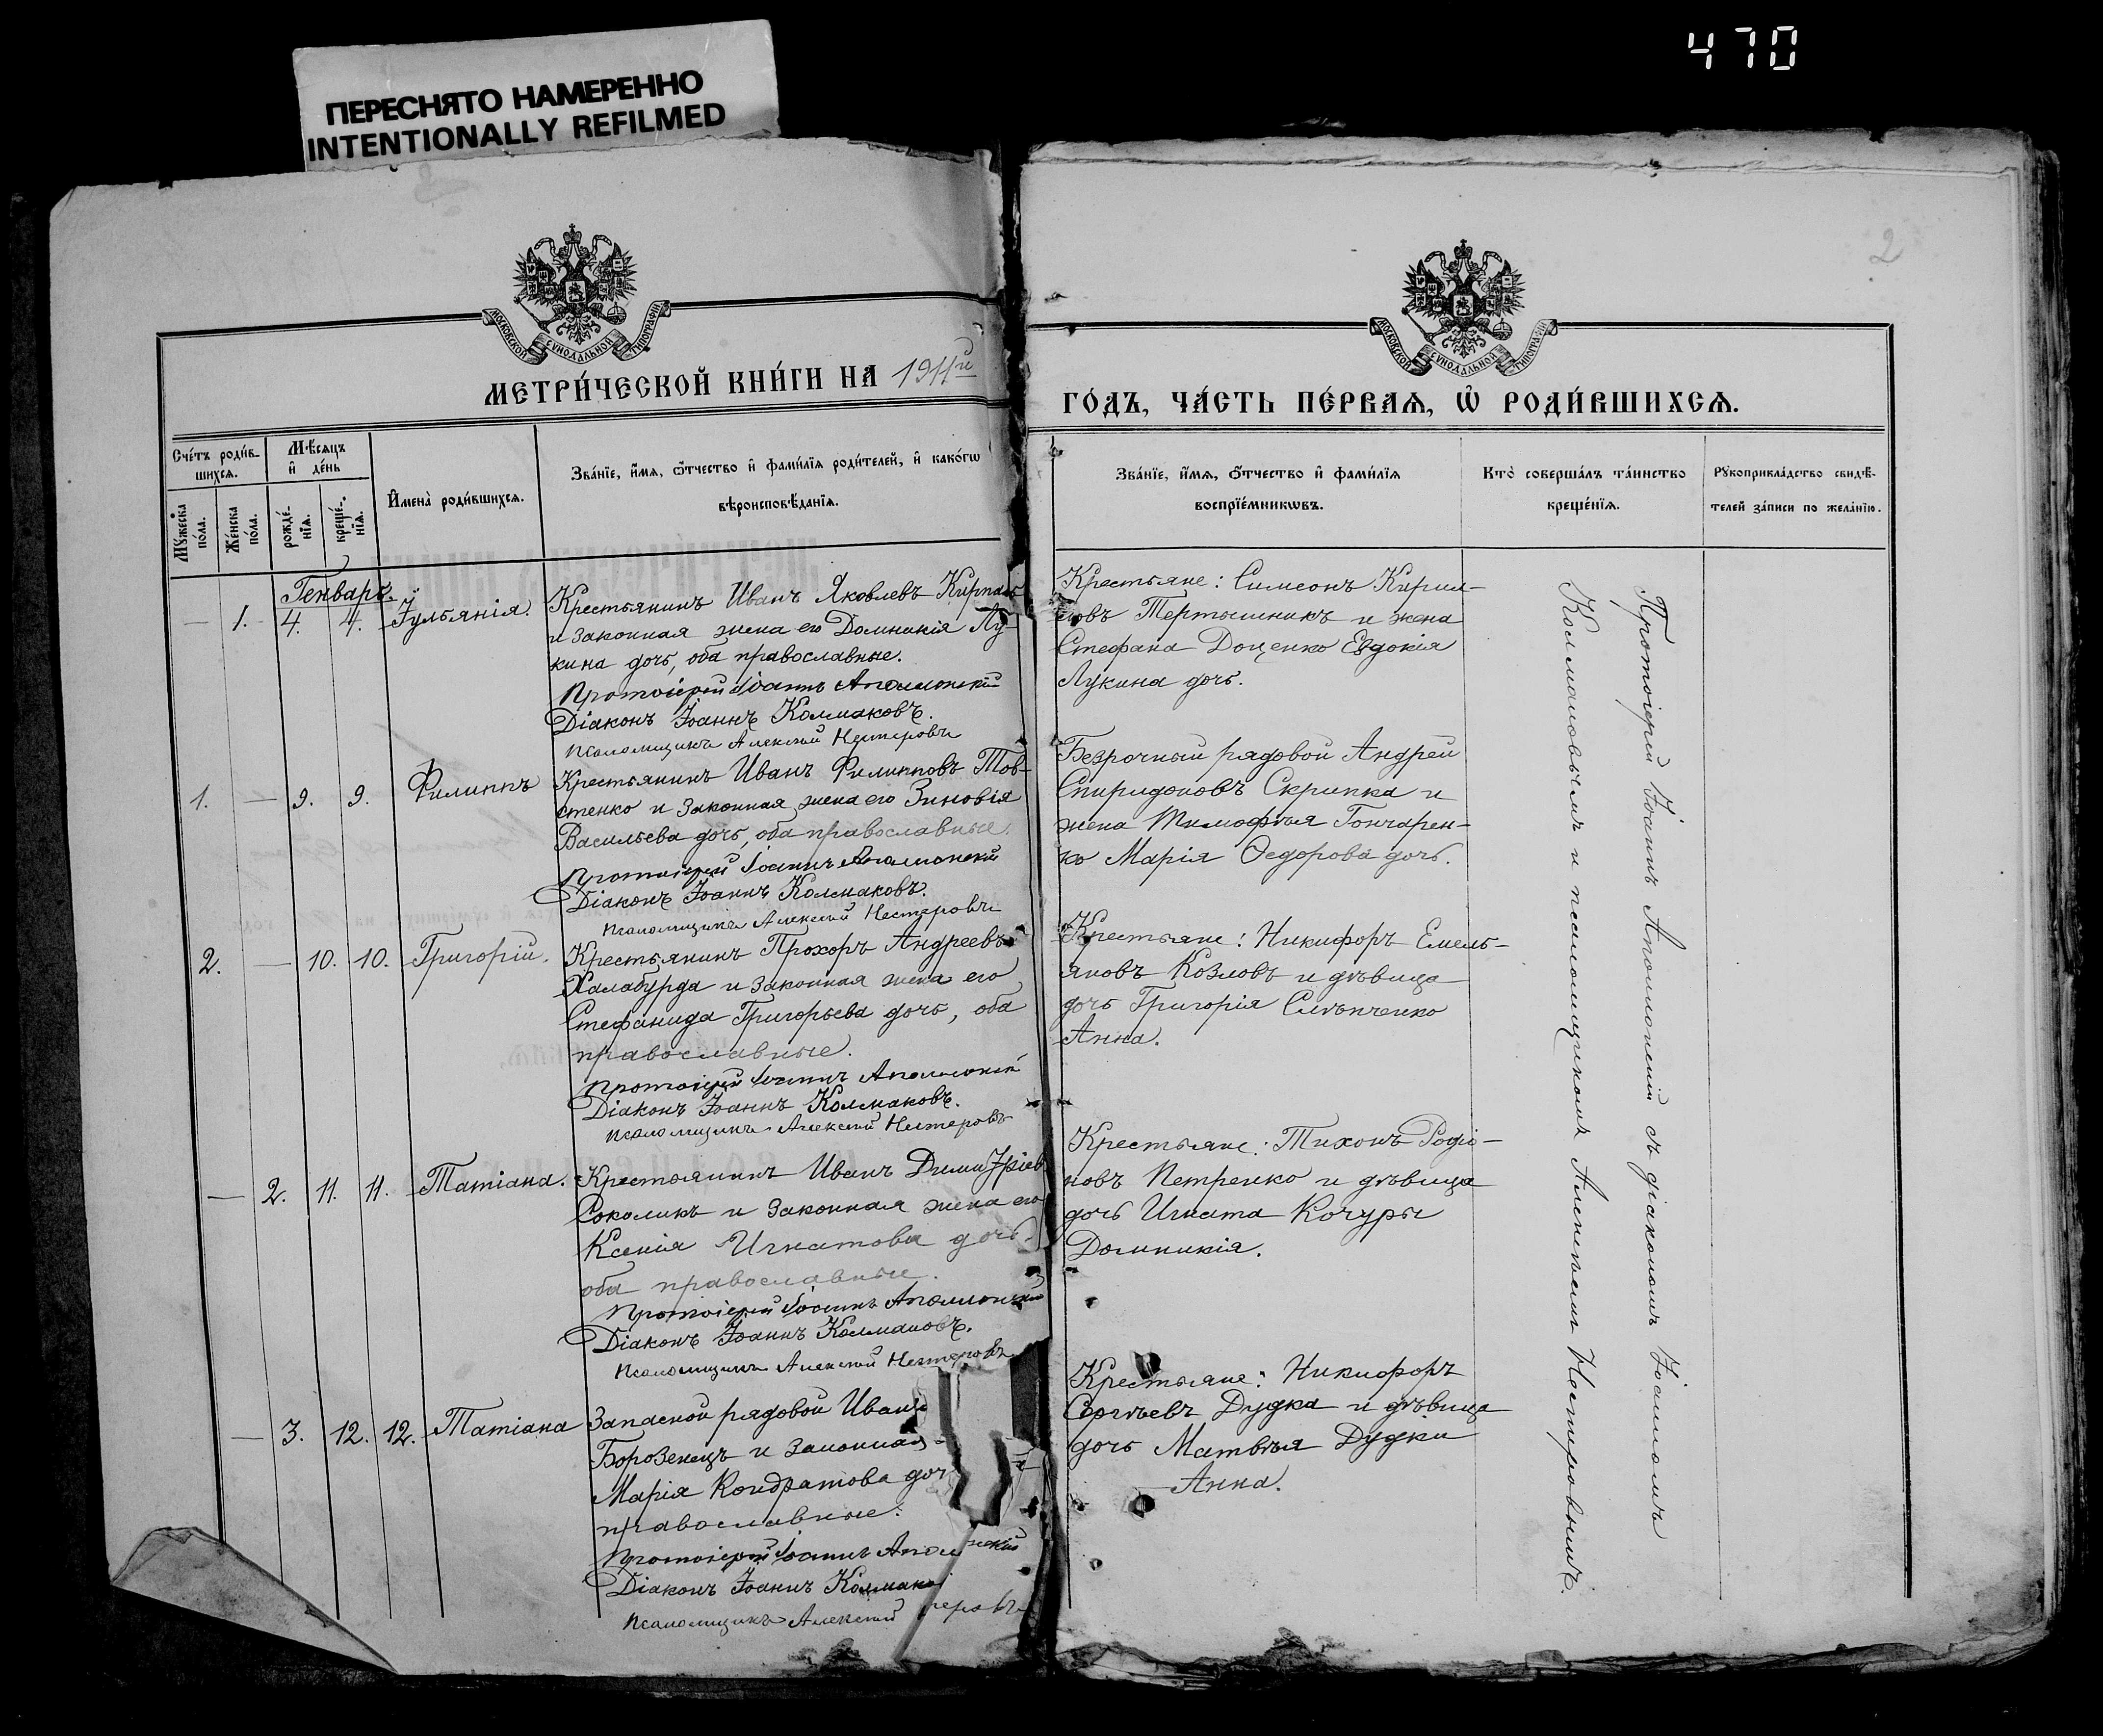 470
ПЕРЕСНЯТО НАМЕРЕННО
INTENTIONALLY REFILMED
2
МОСКОВСКОЙ СУНОДАЛЬНОЙ ТИПОГРАФІИ
МОСКОВСКОЙ СУНОДАЛЬНОЙ ТИПОГРАФІИ
МЕТРИ́ЧЕСКОЙ КНИ́ГИ НА 1911й
ГО́ДЪ, ЧА́СТЬ ПЕ́РВАѦ, Ѡ҆ РОДИ́ВШИХСѦ.
Сче́тъ роди́в-
шихсѧ.
Мѣ́сѧцъ
и҆ де́нь
Мꙋ́жеска
по́ла.
Же́нска
по́ла.
рожде́-
нїѧ.
креще́-
нїѧ.
И҆мена̀ роди́вшихсѧ.
Зва́нїе, и҆́мѧ, ѻ҆́тчество и҆ фами́лїѧ роди́телей, и҆ како́гѡ
вѣроисповѣ́данїѧ.
Зва́нїе, и҆́мѧ, ѻ҆́тчество и҆ фами́лїѧ
воспрїе́мникѡвъ.
Кто̀ соверша́лъ та́инство
креще́нїѧ.
Рꙋкоприкла́дство свидѣ́-
телей за́писи по жела́нїю.
Генварь.
— 1. 4. 4. Іуліанія.
Крестьянинъ Иванъ Яковлевъ
и законная жена его Домникія Лу-
кина дочь, оба православные.
Протоіерей Іоаннъ Аполлонскій
Діаконъ Іоаннъ Колмаковъ.
Псаломщикъ Алексій Нестеровъ
Крестьяне: Симеонъ Кирил-
ловъ Тертышникъ и жена
Стефана Доценко Евдокія
Лукина дочь.
1. — 9. 9. Филиппъ
Крестьянинъ Иванъ Филипповъ Тов-
стенко и законная жена его Зиновія
Васильева дочь, оба православные.
Протоіерей Іоаннъ Аполлонскій
Діаконъ Іоаннъ Колмаковъ.
Псаломщикъ Алексій Нестеровъ
Безрочный рядовой Андрей
Спиридоновъ Скрипка и
жена Тимофея Гончарен-
ко Марія Ѳедорова дочь.
2. — 10. 10. Григорій.
Крестьянинъ Прохоръ Андреевъ
Халабурда и законная жена его
Стефанида Григорьева дочь, оба
православные.
Протоіерей Іоаннъ Аполлонскій
Діаконъ Іоаннъ Колмаковъ.
Псаломщикъ Алексій Нестеровъ
Крестьяне: Никифоръ Емель-
яновъ Козловъ и дѣвица
дочь Григорія Слѣпченко
Анна.
— 2. 11. 11. Татіана.
Крестьянинъ Иванъ Димитріев
Соколикъ и законная жена его
Ксенія Игнатова дочь,
оба православные.
Протоіерей Іоаннъ Аполлонскій
Діаконъ Іоаннъ Колмаковъ.
Псаломщикъ Алексій Нестеровъ
Крестьяне: Тихонъ Родіо-
новъ Петренко и дѣвица
дочь Игната Кочуры
Домникія.
— 3. 12. 12. Татіана
Запасной рядовой Иванъ
Борозенецъ и законная
Марія Кондратова доч
православные:
Протоіерей Іоаннъ Апол нскій
Діаконъ Іоаннъ Колмако
Псаломщикъ Алексій теровъ
Крестьяне: Никифоръ
Сергѣевъ Дудка и дѣвица
дочь Матвѣя Дудки
Анна.
Протоіерей Іоаннъ Аполлонскій съ діакономъ Іоанномъ
Колмаковымъ и псаломщикомъ Алексѣемъ Нестеровымъ.